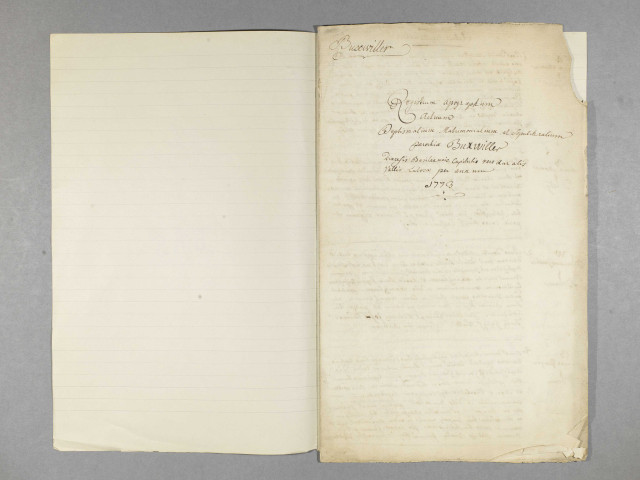 Buxwiller
Registrum apographum
Actuum
Baptismalium Matrimonialium et Sepulturalium
parochiæ Buxwiller
Diæcesis Basileensis Capituli ruralis
Vallis per annum
1773